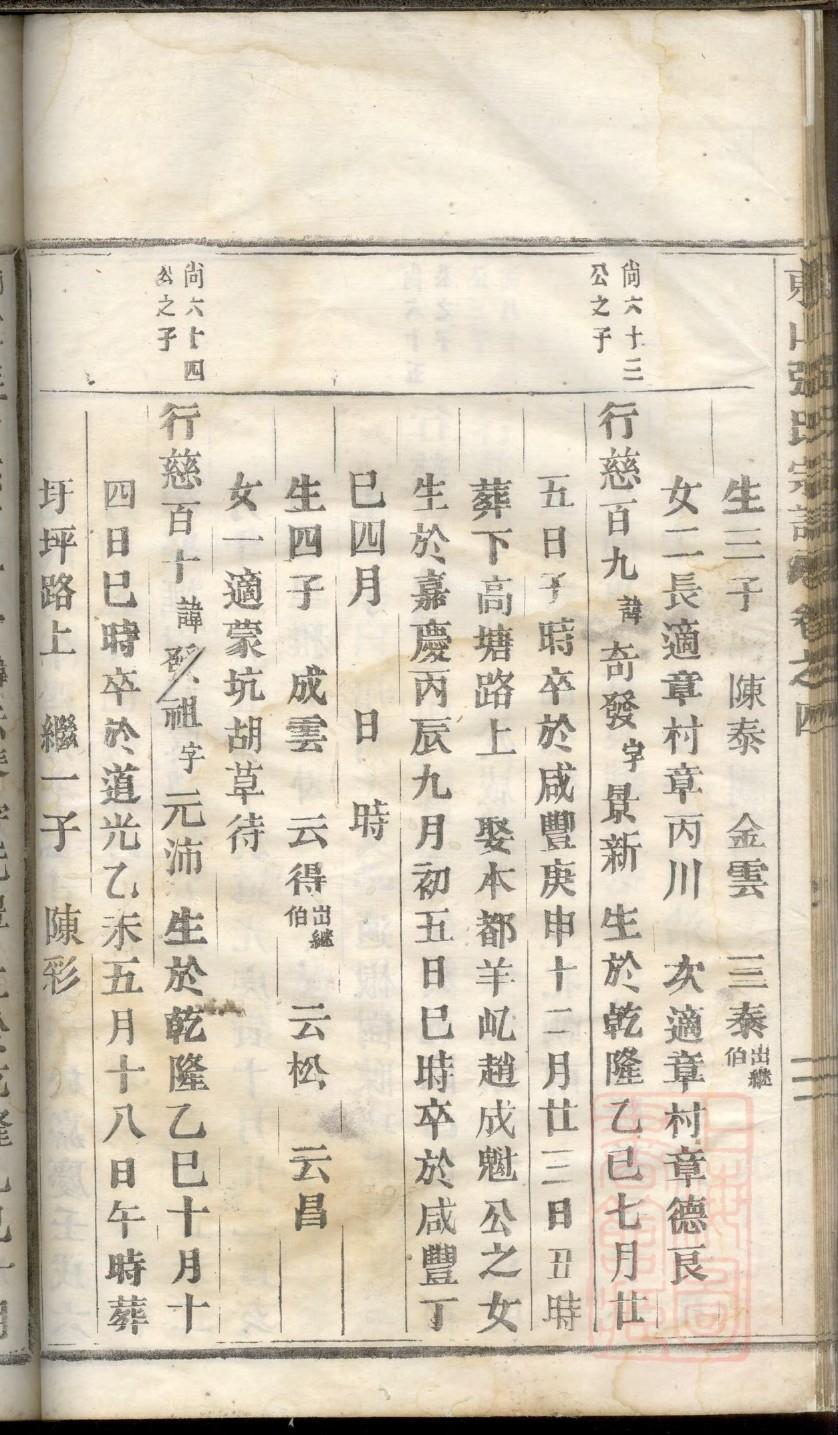 東山張氏宗譜 卷之四
生三子 陳泰 金雲 三泰出繼伯
女二長適章村章丙川 次適章村章德良
尙六十三公之子
行慈百九諱奇發字景新 生於乾隆乙巳七月廿
五日子時卒於咸豐庚申十二月廿三日丑時
葬下高塘路上 娶本都羊屺趙成魁公之女
生於嘉慶丙辰九月初五日巳時卒於咸豐丁
巳四月 日 時
生四子 成雲 云得出繼伯 云松 云昌
女一適蒙坑胡草待
尙六十四公之子
行慈百十諱 祖字元沛 生於乾隆乙巳十月十
四日巳時卒於道光乙未五月十八日午時葬
圩坪路上 繼一子 陳彩